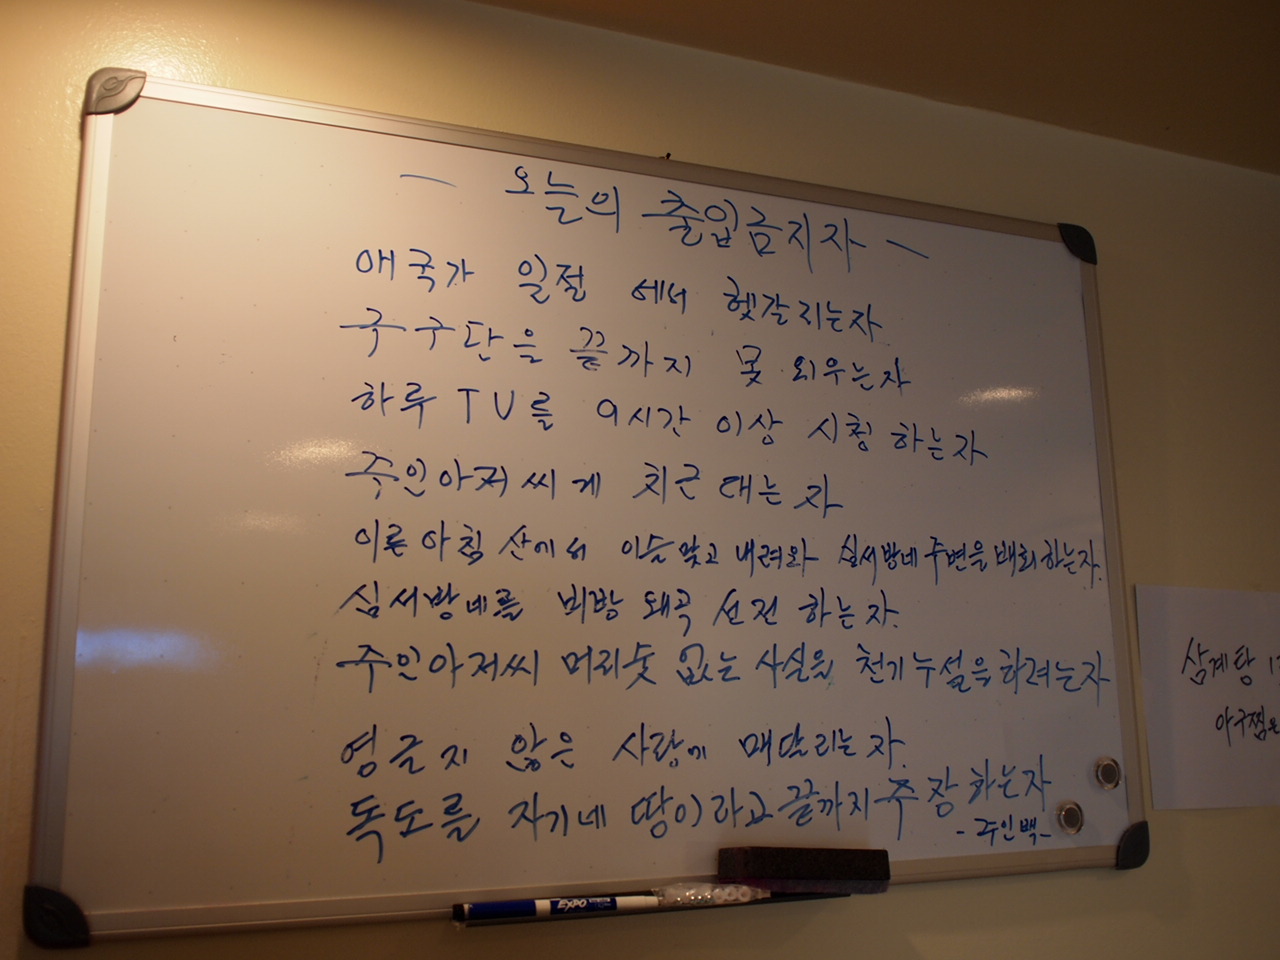 - 오늘의 출입금지자 -
애국가 일절 에서 헷갈리는자
구구단을 끝까지 못 외우는자
하루 TV를 9시간 이상 시청 하는자
주인아저씨께 치근대는 자
이른아침 산에서 이슬맞고 내려와 심서방네 주변을 배회하는자.
심서방네를 비방 왜곡 선전 하는자.
주인아저씨 머리숯 없는 사실을 천기누설을하려는자
영글지 않은 사랑에 매달리는자.
독도를 자기네 땅이라고 끝까지 주장하는자
-주인백-
삼계탕
아구찜
EXPO